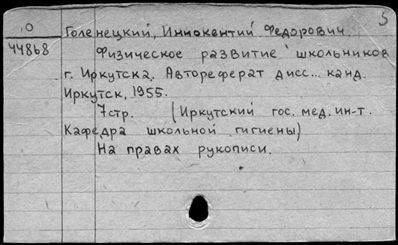 5
О Голенецкий, Иннокентий Федорович.
44868 Физическое развитие школьников
г. Иркутска, Автореферат дисс... канд.
Иркутск, 1955.
7стр. (Иркутский гос. мед. ин-т.
Кафедра школьной гигиены)
На правах рукописи.